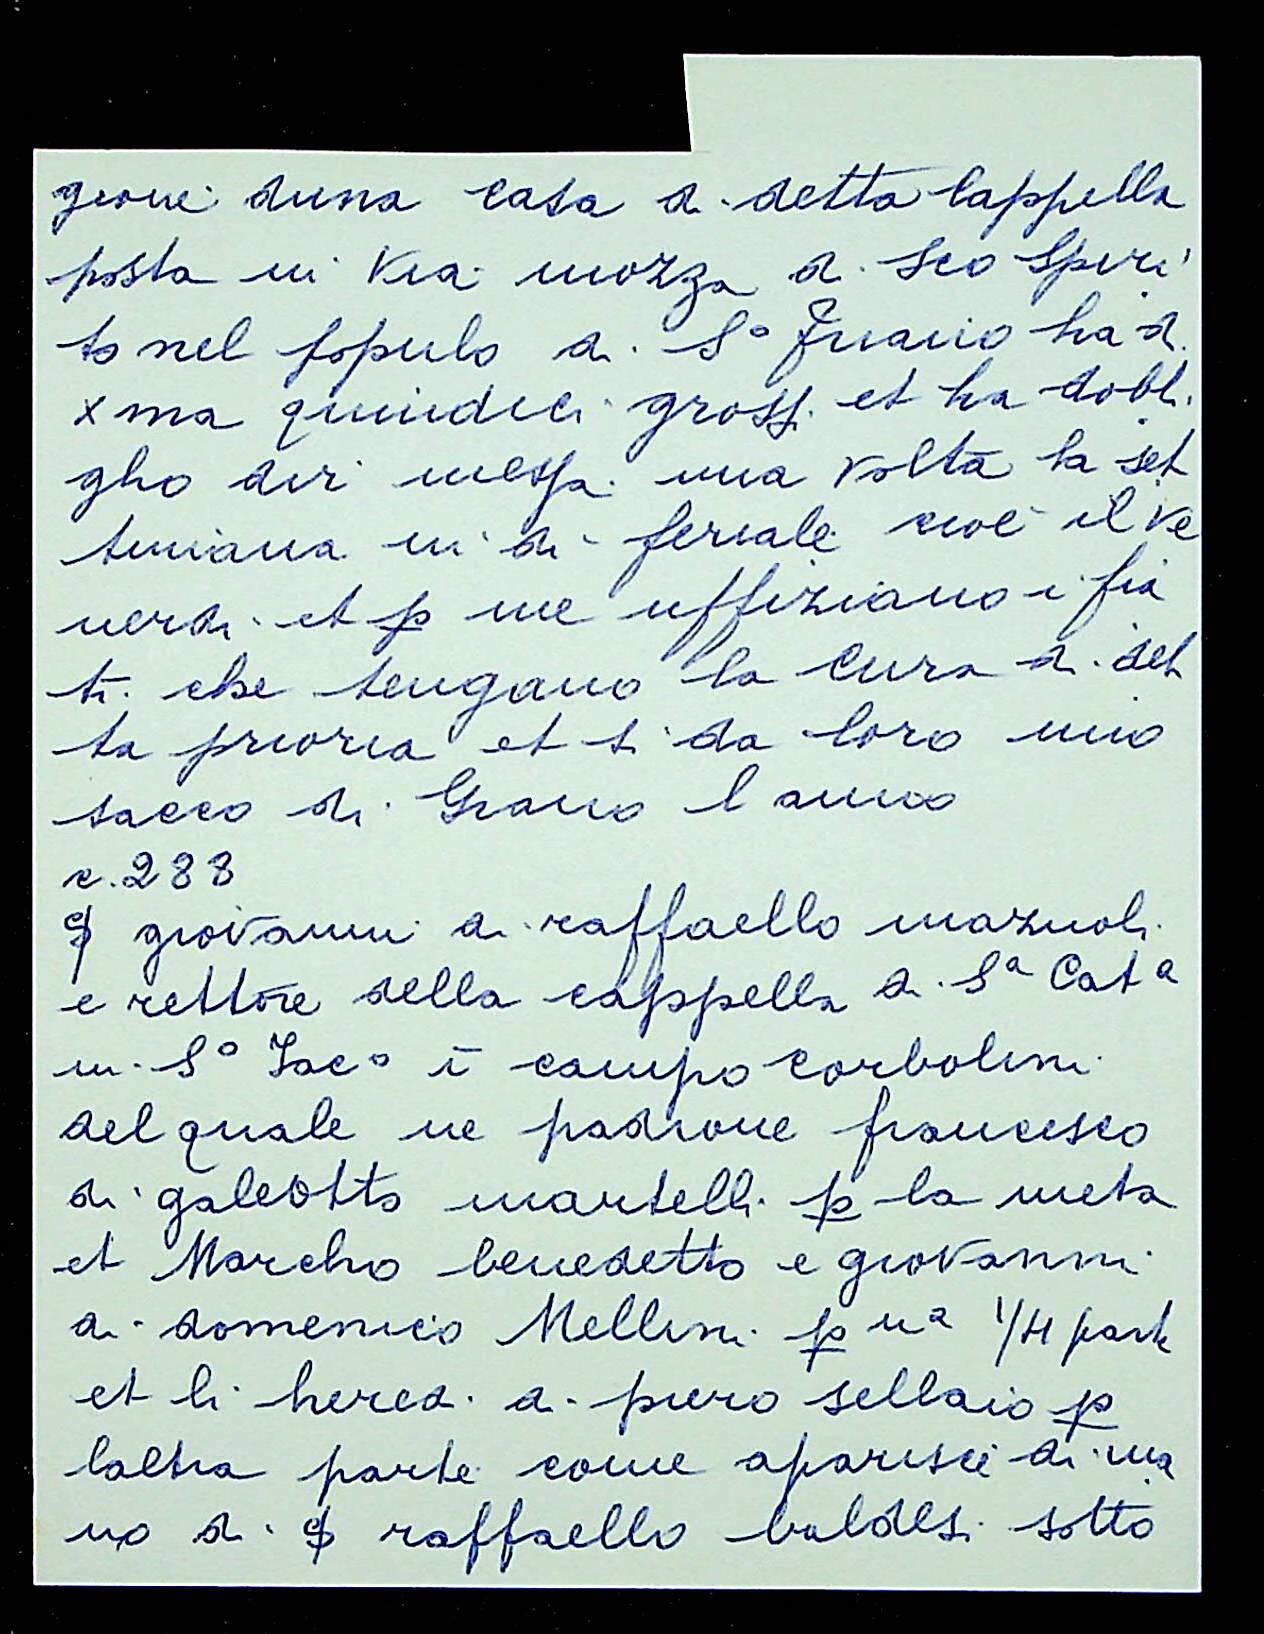 gione duna casa di detta cappella
posta in Via mozza di Sco Spiri
to nel populo di S° friano ha di
xma quindici grossi et ha dobli
gho dir messa una volta la set
timana in di feriale cioè il ve
nerdi et p me uffiziano i fra
ti che tengano la cura di det
ta prioria et si da loro uno
sacco di Grano l anno
c. 288
giovanni di raffaello mazuoli
e rettore della cappella di Sª Catª
in S° Jac° ī campo corbolini
del quale ne padrone francesco
di galeotto martelli p la meta
et Marcho benedetto e giovanni
di domenico Mellini p uª 1/4 parte
et li heredi di piero sellaio p
laltra parte come aparisce di ma
no di raffaello baldesi sotto